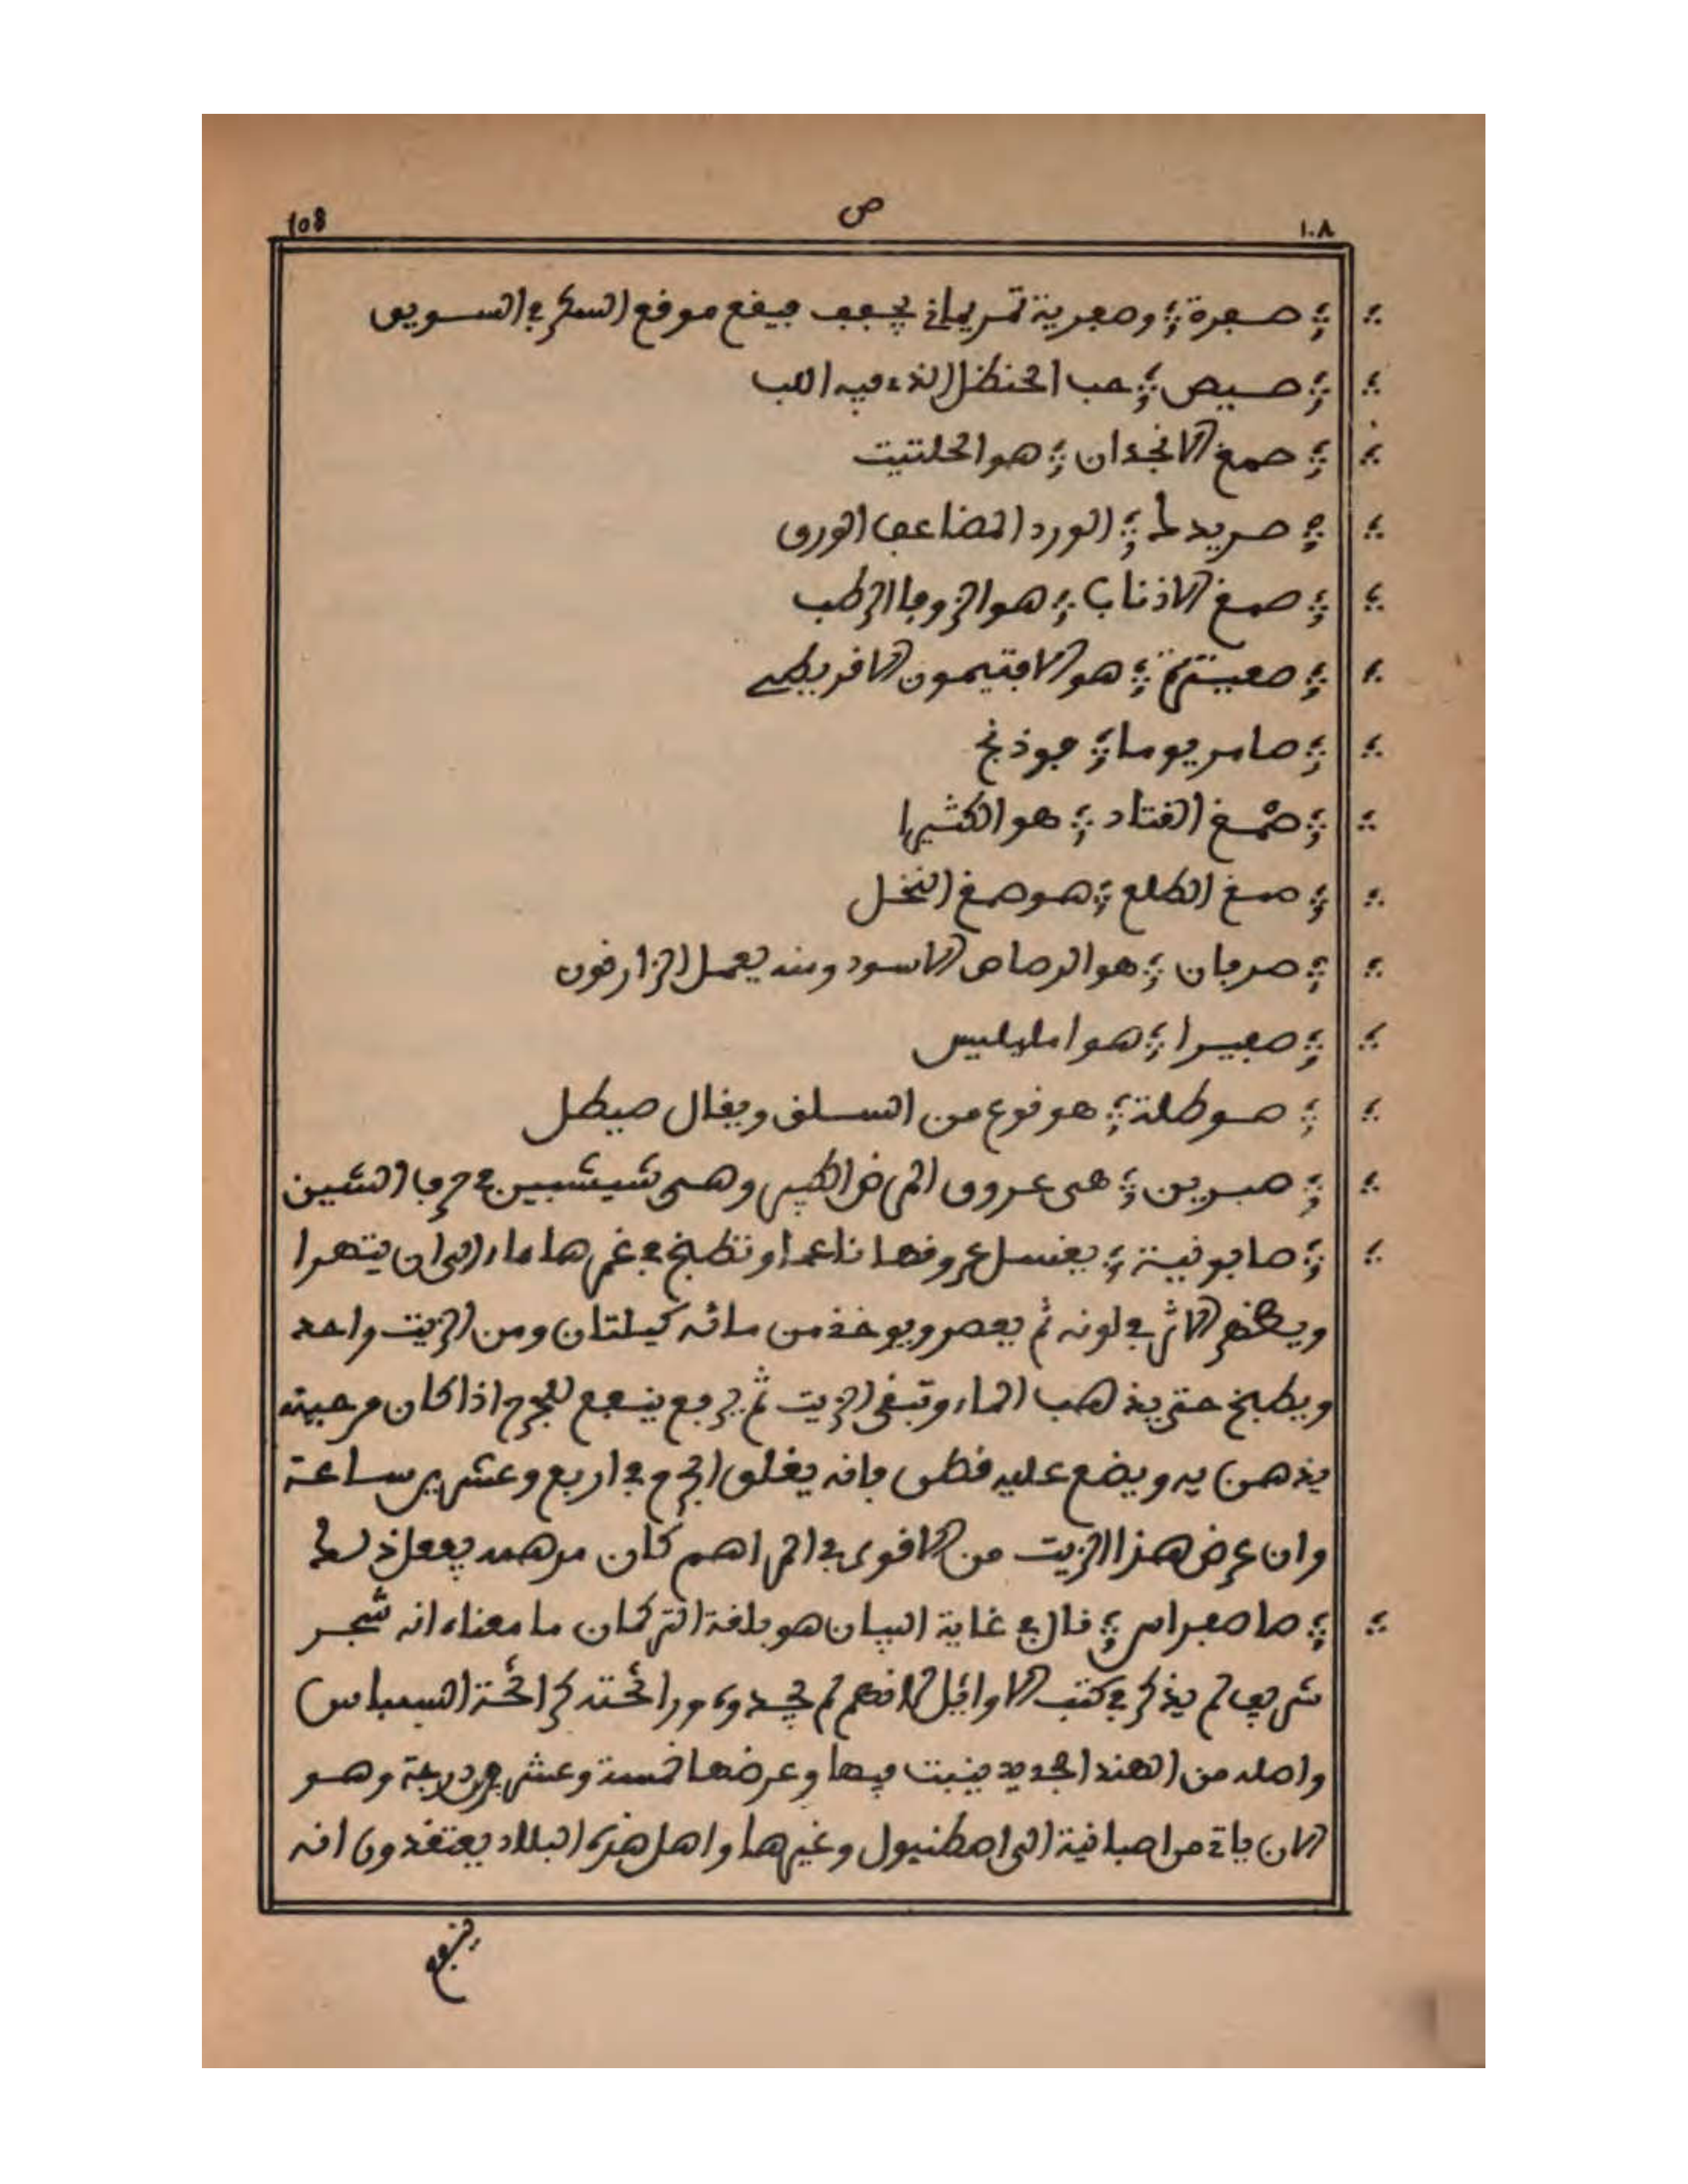 ١٠٨ ص 108
صفرة وصفرية تمر يماني يجفف فيقع موقع السكر في السويق
صيص حب الحنظل الذي فيه اللب
صمغ الانجدان هو الحلتيت
صريدلا الورد المضاعف الورق
صمغ الاذناب هو الزوفا الرطب
هو الافتيمون الاقريطي
صامريوما فوذنج
صمغ القتاد هو الكثيرا
صمغ الطلع هو صمغ النخل
صرفان هو الرصاص الاسود ومنه يعمل الزارقون
صفيرا هو امليليس
صوطلة هو نوع من السلق ويقال صيطل
صبرين هي عروق المراض الكبير وهي شيشبين في حرف الشين
صابونية يغسل عروقها ناعما وتطبخ في غمرها ماء الى ان يتهرا
ويظهر الاثر في لونه ثم يعصر ويوخذ من مائه كيلتان ومن الزيت واحد
ويطبخ حتى يذهب الماء وتبقى الزيت ثم يرفع ينفع للجرح اذا كان من حينه
يذهن به ويضع عليه قطن فانه يغلق الجرح في اربع وعشرين ساعة
وان عرض هذا الزيت من الاقوى في المراهم كان مرهمه يفعل ذلك
صاصفراس قال في غاية البيان هو بلغة التركمان ما معناه انه شجر
شريف لم يذكر في كتب الاوايل لانهم لم يجدوه ورائحته كرائحة البسباس
واصله من الهند الجديد ينبت فيها وعرضها خمسة وعشرون درجة وهو
الان ياتي من اصبانية الى اصطنبول وغيرها واهل هذه البلاد يعتقدون انه
ينفع